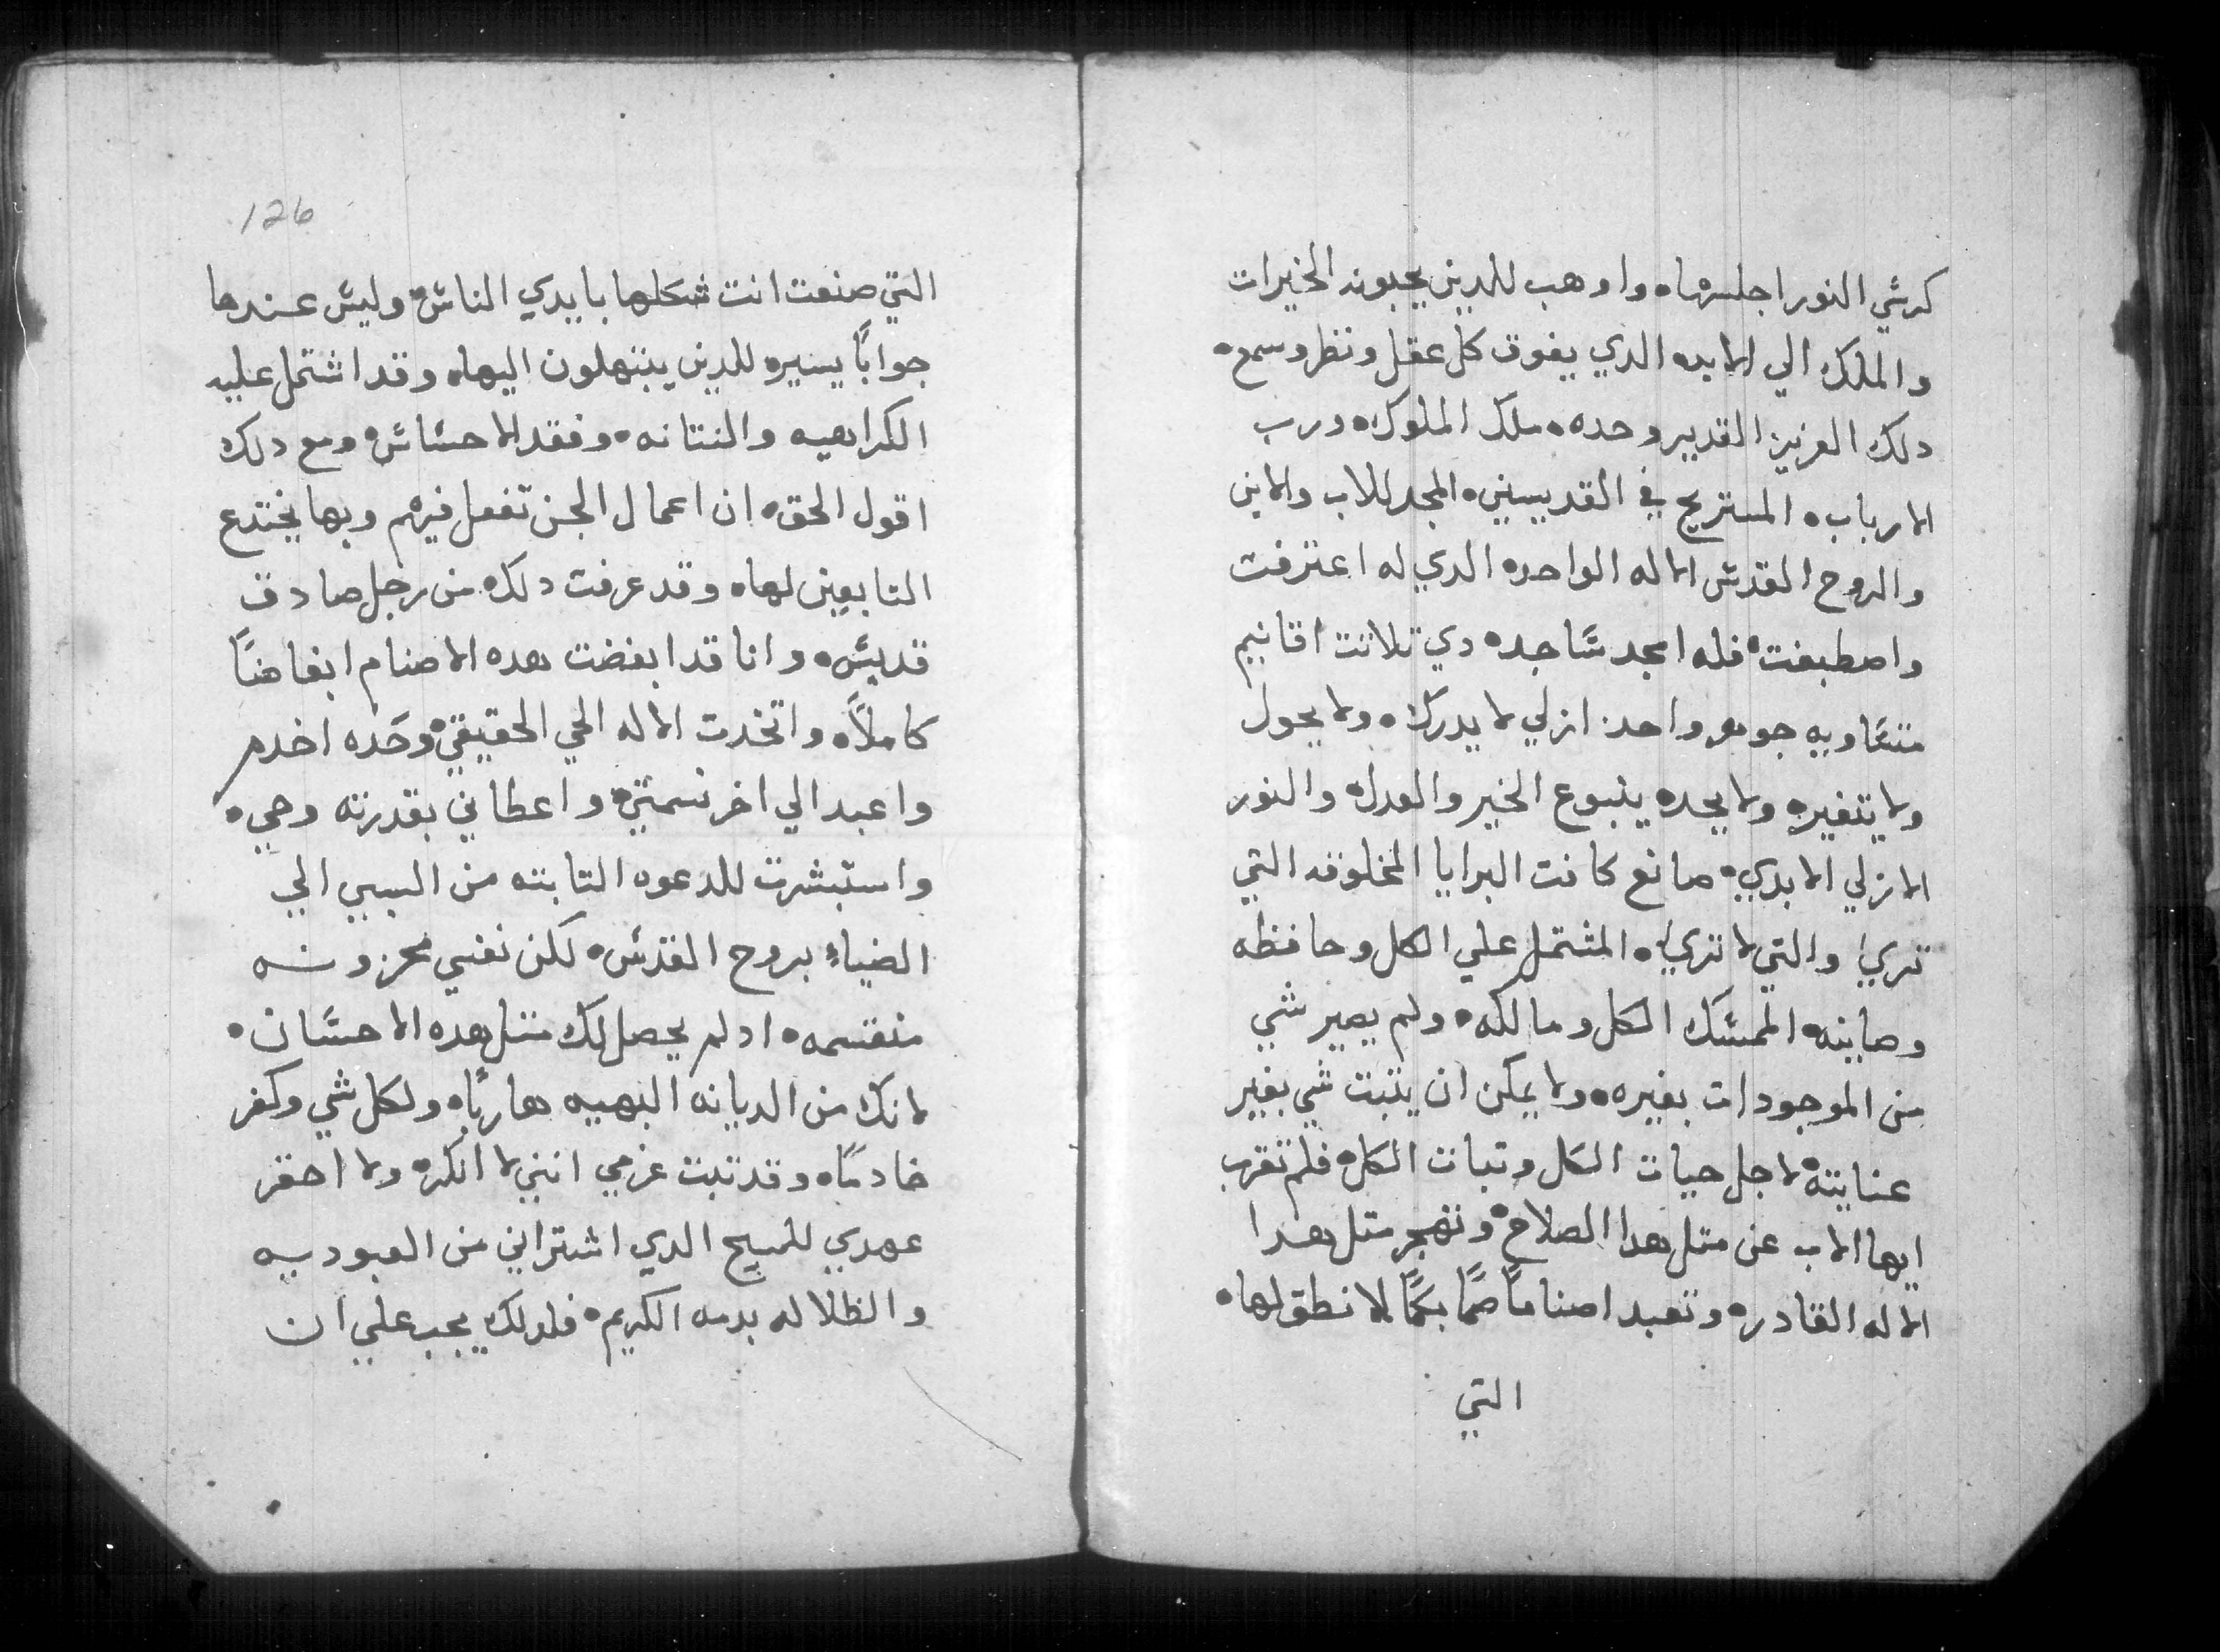 كرشي النور اجلسها ه واوهب للدين يحبونه الخيرات
والملك الي الابده الدي يفوق كل عقل ونظر وسمع ه
دلك العزيز القدير وحده ه ملك الملوك ه ورب
الارباب ه المستريح في القديسين ه المجد للاب والابن
والروح القدس الاله الواحده الدي له اعترفت
واصطبغت ه فله امجد ساجده دي تلاتت اقانيم
متساويه جوهر واحد ازلي لا يدرك ه ولا يحول
ولا يتغير ه ولا يحده ينبوع الخير والعدل ه والنور
الازلي الابدي ه صانع كافت البرايا المخلوقه التي
تري والتي لا تري ه المشتمل علي الكل وحافظه
وصاينه الممسك الكل ومالكه ه ولم يصير شي
من الموجودات بغيره ه ولا يمكن ان يتبت شي بغير
عنايته ه لاجل حيات الكل وتبات الكل ه فلم تقرب
ايها الاب عن متل هدا الصلاح ه وتهجر متل هدا
الاله القادر ه وتعبد اصناماً صماً بكماً لا نطق لها ه
التي
126
التي صنعت انت شكلها بايدي الناس ه وليس عندها
جواباً يسيره للدين يبتهلون اليها ه وقد اشتمل عليه
الكراهيه والنتانه ه وفقد الاحساس ه ومع دلك
اقول الحق ه ان اعمال الجن تفعل فيهم وبها يختدع
التابعين لها ه وقد عرفت دلك ه من رجل صادق
قديس ه وانا قد ابغضت هده الاصنام ابغاضاً
كاملاً ه واتخدت الاله الحي الحقيقي ه وحده اخدم
واعبد الي اخر نسمتي ه واعطاني بقدرته وحي ه
واستبشرت للدعوه التابته من السبي الي
الضياء بروح القدس ه لكن نفسي محزونه
منقسمه ه اد لم يحصل لك متل هده الاحسان ه
لانك من الديانه البهيه هارباً ه ولكل شي وكفر
خادماً ه وقد تبت عزمي انني لا انكر ه ولا احقر
عهدي للمسيح الدي اشتراني من العبوديه
والظلاله بدمه الكريم ه فلدلك يجب علي ان